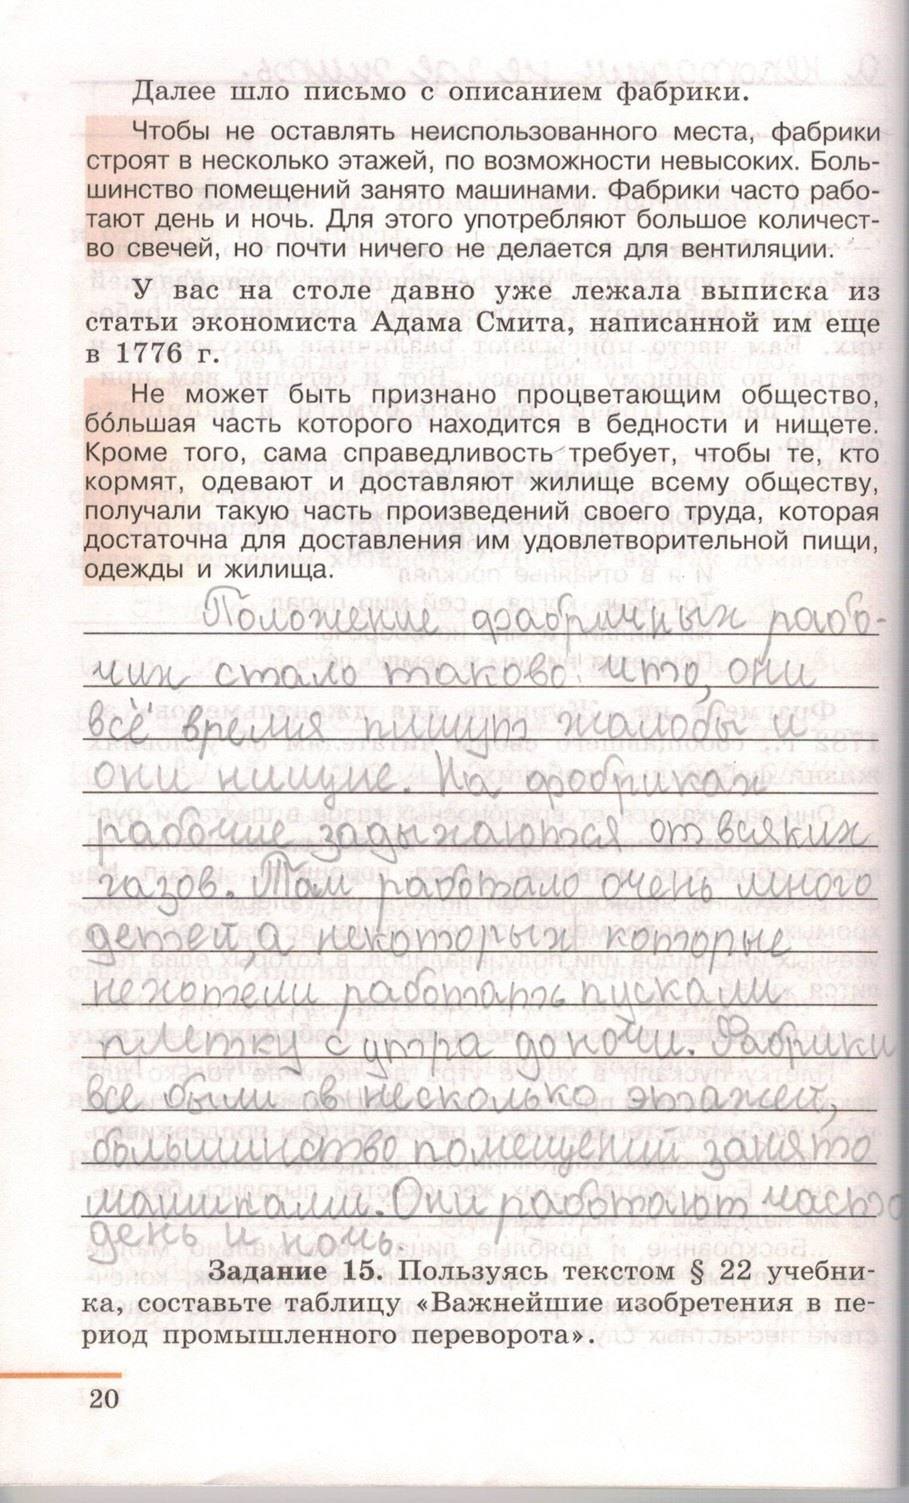 Далее шло письмо с описанием фабрики.
Чтобы не оставлять неиспользованного места, фабрики
строят в несколько этажей, по возможности невысоких. Боль-
шинство помещений занято машинами. Фабрики часто рабо-
тают день и ночь. Для этого употребляют большое количест-
во свечей, но почти ничего не делается для вентиляции.
У вас на столе давно уже лежала выписка из
статьи экономиста Адама Смита, написанной им еще
в 1776 г.
Не может быть признано процветающим общество,
бо́льшая часть которого находится в бедности и нищете.
Кроме того, сама справедливость требует, чтобы те, кто
кормят, одевают и доставляют жилище всему обществу,
получали такую часть произведений своего труда, которая
достаточна для доставления им удовлетворительной пищи,
одежды и жилища.
Положение фабричных рабо-
чих стало таково что, они
всё время пишут жалобы и
они нищие. На фобриках
рабочие задыхаются от всяких
газов. Там работало очень много
детей, а некоторых которые
нехотели работать пускали
плетку с утра до ночи. Фабрики
все были в несколько этажей,
большинство помещений занято
машинами. Они работают часто
день и ночь.
Задание 15. Пользуясь текстом § 22 учебни-
ка, составьте таблицу «Важнейшие изобретения в пе-
риод промышленного переворота».
20